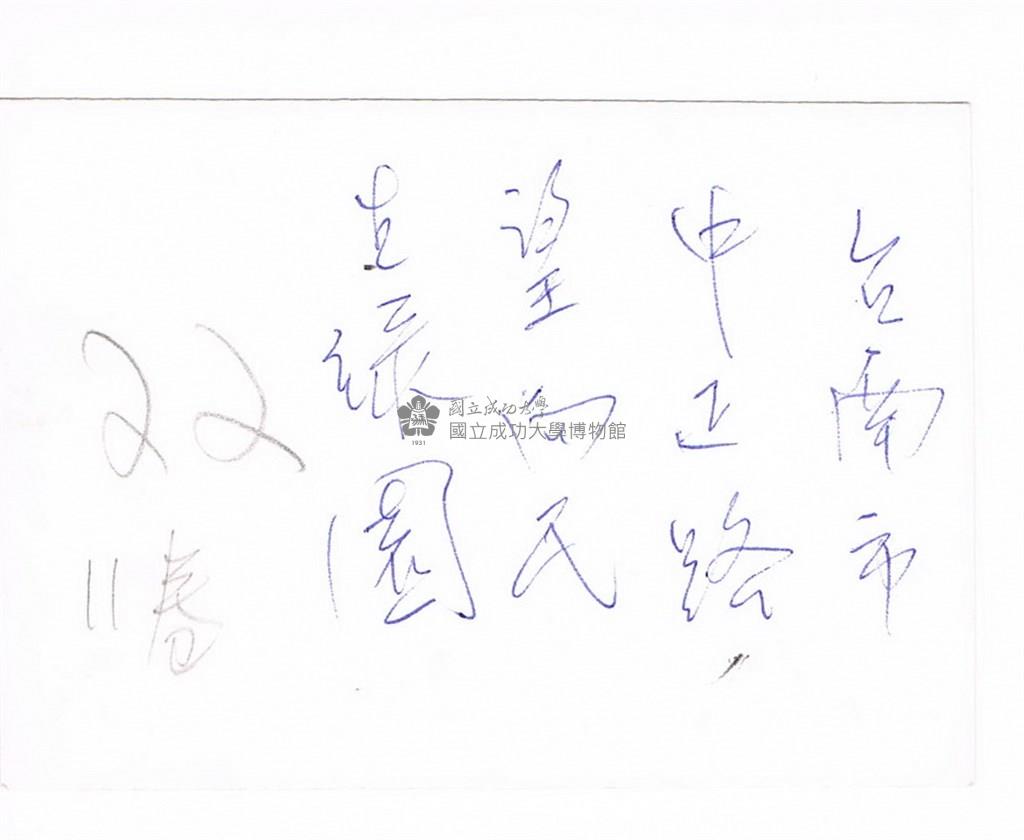 台南市
中正路
望向民
生綠園
22
11 春
國立成功大學
國立成功大學博物館
1931